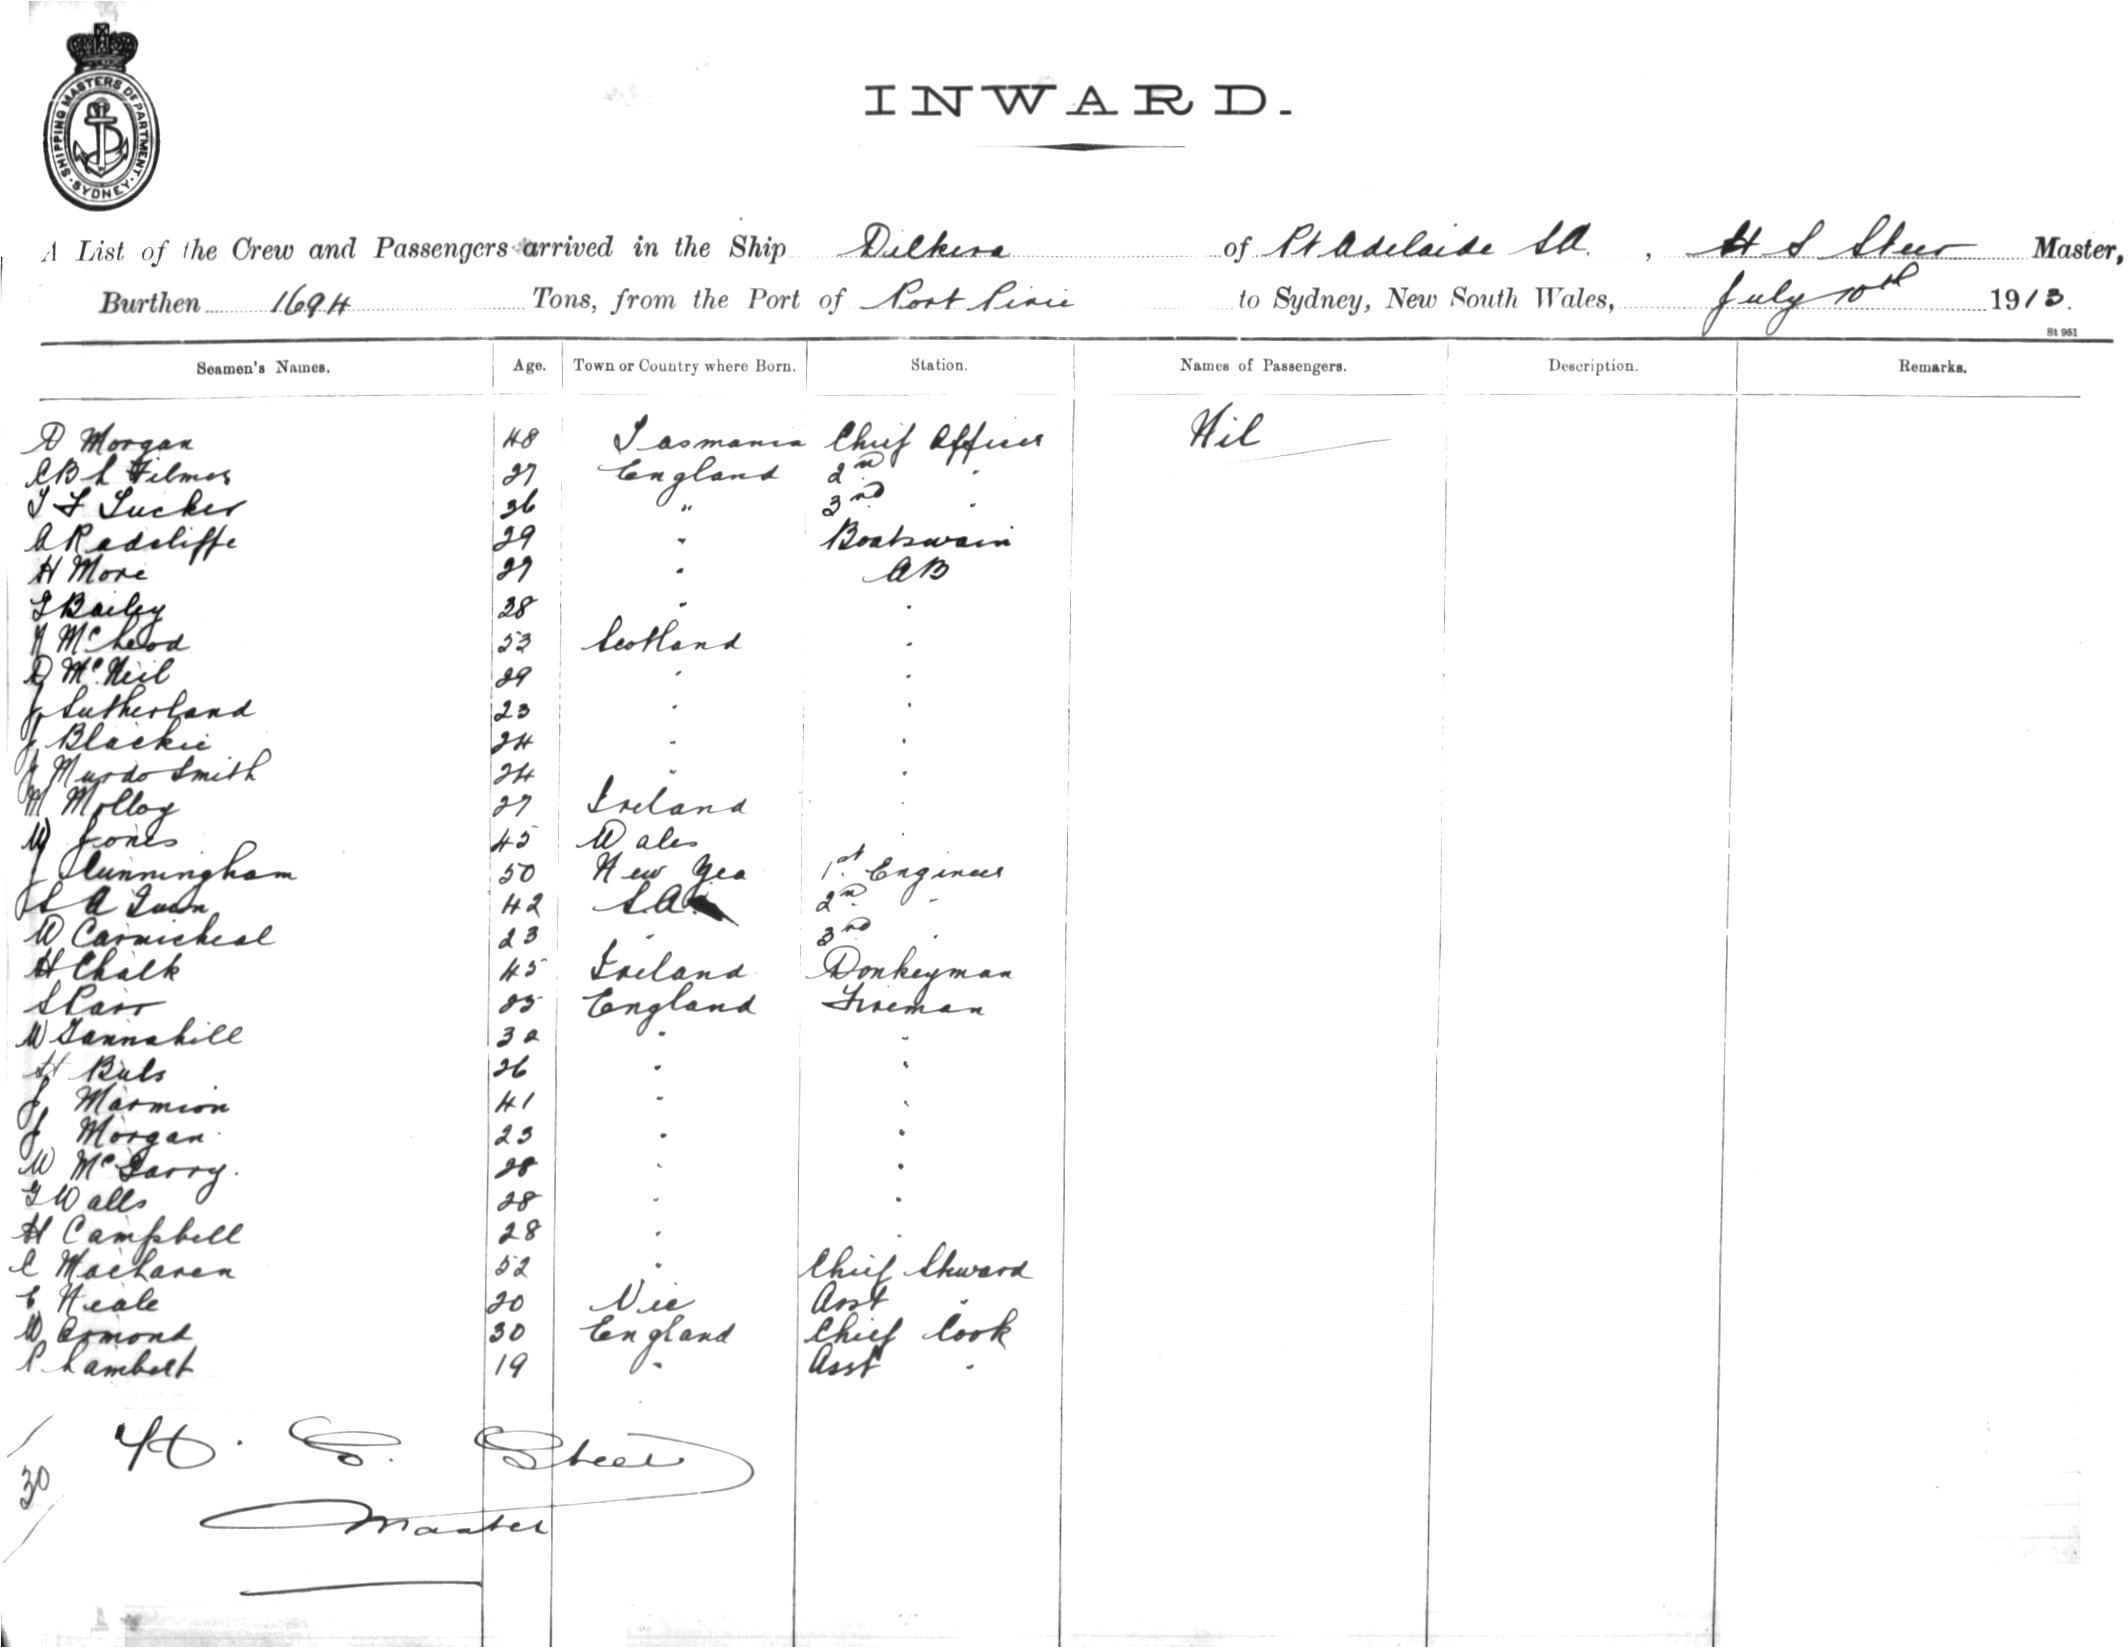 SHIPPING MASTERS DEPARTMENT. SYDNEY.
INWARD.
A List of the Crew and Passengers arrived in the Ship Dilkera of Pt Adelaide SA. , H S Steer Master,
Burthen 1694 Tons, from the Port of Port Pirie to Sydney, New South Wales, July 10th 1913.
St 951
Seamen's Names. Age. Town or Country where Born. Station. Names of Passengers. Description. Remarks.
D Morgan 48 Tasmania Chief Officer Nil
C B L Filmer 27 England 2nd "
T F Tucker 26 " 3rd "
A Radcliffe 29 " Boatswain
H More 27 " AB
G Bailey 28 " "
N McLeod 53 Scotland "
D McNeil 29 " "
J Sutherland 23 " "
J Blackie 24 " "
Murdo Smith 24 " "
M Molloy 27 Ireland "
W Jones 45 Wales "
J Cunningham 50 New Zea 1st Engineer
S A 42 S.A. 2nd "
W Carmicheal 23 " 3rd "
H Chalk 45 Ireland Donkeyman
S Parr 25 England Fireman
W Tannahill 32 " "
H 26 " "
J Marmion 41 " "
J Morgan 23 " "
W McGarry. 28 " "
G Walls 28 " "
H Campbell 28 " "
C MacLaren 52 " Chief Steward
E Neale 20 Vic Asst "
W Ormond 30 England Chief Cook
P Lambert 19 " Asst "
H. S. Steer
30
Master